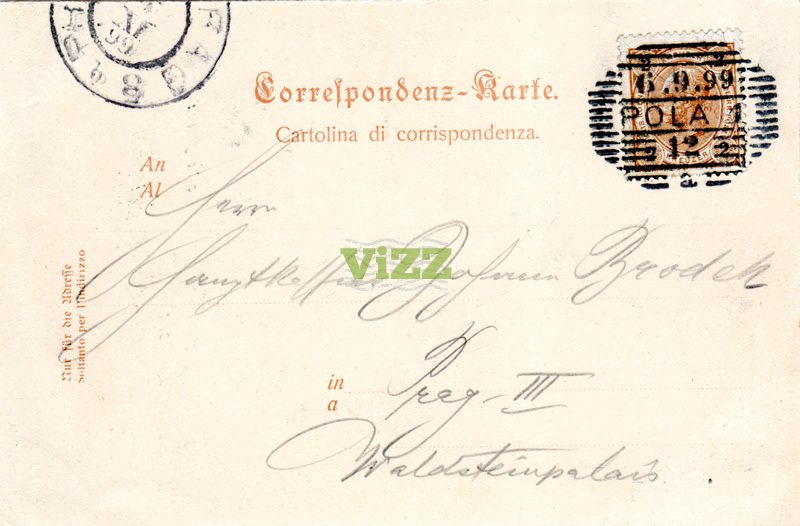 PRAG 3 d
99
2 2
6.9.99
POLA 1
12
2 2
KREUZER
a
Correſpondenz-Karte.
Cartolina di corrispondenza.
An
Al
Herrn
Hauptkassier Johann Brodek
ViZZ
Nur für die Adreſſe
Soltanto per l'indirizzo
in
a
Prag - III
Waldsteinpalais